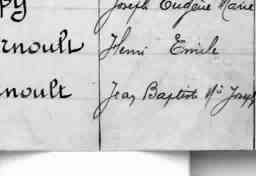 py Joseph Eugène Marie
rnoult Henri Emile
noult Jean Baptiste Mie Joseph